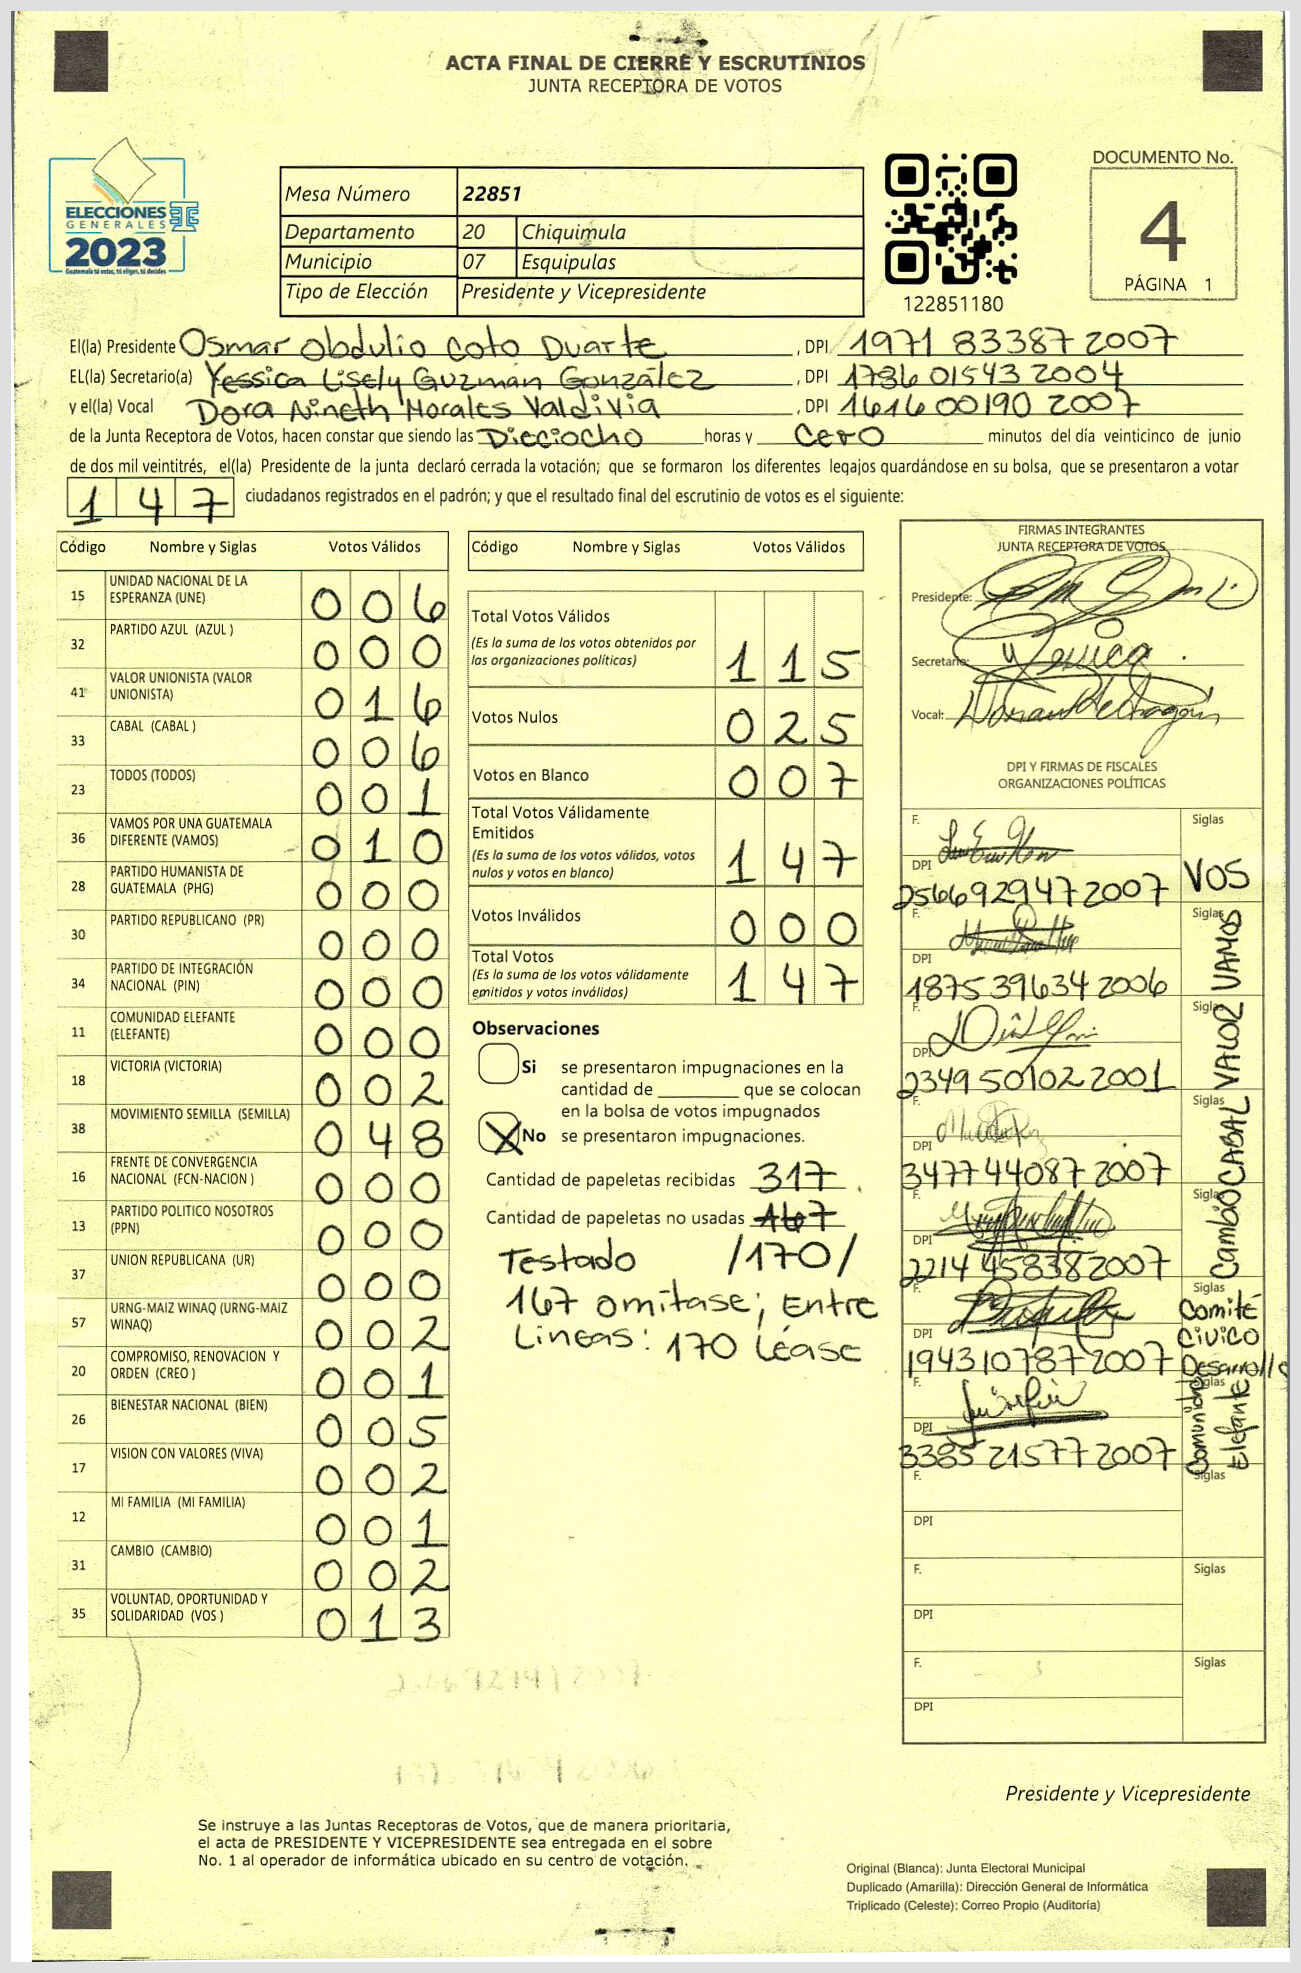 ACTA FINAL DE CIERRE Y ESCRUTINIOS
JUNTA RECEPTORA DE VOTOS
ELECCIONES
GENERALES
2023
Guatemala tú votas, tú eliges, tú decides
Mesa Número 22851
Departamento 20 Chiquimula
Municipio 07 Esquipulas
Tipo de Elección Presidente y Vicepresidente
122851180
DOCUMENTO No.
4
PÁGINA 1
El(la) Presidente Osmar Obdulio Coto Duarte, DPI 1971 83387 2007
EL(la) Secretario(a) Yessica Lisely Guzmán González, DPI 1736 01543 2004
y el(la) Vocal Dora Nineth Morales Valdivia, DPI 1616 00190 2007
de la Junta Receptora de Votos, hacen constar que siendo las Dieciocho horas y cero minutos del día veinticinco de junio
de dos mil veintitrés, el(la) Presidente de la junta declaró cerrada la votación; que se formaron los diferentes legajos quardándose en su bolsa, que se presentaron a votar
147 ciudadanos registrados en el padrón; y que el resultado final del escrutinio de votos es el siguiente:
Código Nombre y Siglas Votos Válidos
15 UNIDAD NACIONAL DE LA ESPERANZA (UNE) 006
32 PARTIDO AZUL (AZUL ) 000
41 VALOR UNIONISTA (VALOR UNIONISTA) 016
33 CABAL (CABAL ) 006
23 TODOS (TODOS) 001
36 VAMOS POR UNA GUATEMALA DIFERENTE (VAMOS) 010
28 PARTIDO HUMANISTA DE GUATEMALA (PHG) 000
30 PARTIDO REPUBLICANO (PR) 000
34 PARTIDO DE INTEGRACIÓN NACIONAL (PIN) 000
11 COMUNIDAD ELEFANTE (ELEFANTE) 000
18 VICTORIA (VICTORIA) 002
38 MOVIMIENTO SEMILLA (SEMILLA) 048
16 FRENTE DE CONVERGENCIA NACIONAL (FCN-NACION ) 000
13 PARTIDO POLITICO NOSOTROS (PPN) 000
37 UNION REPUBLICANA (UR) 000
57 URNG-MAIZ WINAQ (URNG-MAIZ WINAQ) 002
20 COMPROMISO, RENOVACION Y ORDEN (CREO ) 001
26 BIENESTAR NACIONAL (BIEN) 005
17 VISION CON VALORES (VIVA) 002
12 MI FAMILIA (MI FAMILIA) 001
31 CAMBIO (CAMBIO) 002
35 VOLUNTAD, OPORTUNIDAD Y SOLIDARIDAD (VOS ) 013
Código Nombre y Siglas Votos Válidos
Total Votos Válidos 115
(Es la suma de los votos obtenidos por
las organizaciones políticas)
Votos Nulos 025
Votos en Blanco 007
Total Votos Válidamente
Emitidos 147
(Es la suma de los votos válidos, votos
nulos y votos en blanco)
Votos Inválidos 000
Total Votos 147
(Es la suma de los votos válidamente
emitidos y votos inválidos)
Observaciones
Si se presentaron impugnaciones en la
cantidad de ________ que se colocan
en la bolsa de votos impugnados
X No se presentaron impugnaciones.
Cantidad de papeletas recibidas 317
Cantidad de papeletas no usadas 167
Testado /170/
167 omitase; Entre
Lineas: 170 Léase
FIRMAS INTEGRANTES
JUNTA RECEPTORA DE VOTOS
Presidente:
Secretario: Yesica
Vocal:
DPI Y FIRMAS DE FISCALES
ORGANIZACIONES POLÍTICAS
F. Siglas
DPI 256692947 2007 VOS
F. Siglas
DPI 1875 39634 2006 VAMOS
F. Siglas
DPI 2349 50102 2001 VALOR
F. Siglas
DPI 3477 44087 2007 CABAL
F. Siglas
DPI 2214 45838 2007 Cambio
F. Siglas
DPI 1943 10787 2007 Comité Civico Desarrollo
F. Siglas
DPI 3385 21577 2007 Comunidad Elefante
F. Siglas
DPI
F. Siglas
DPI
F. Siglas
DPI
Presidente y Vicepresidente
Se instruye a las Juntas Receptoras de Votos, que de manera prioritaria,
el acta de PRESIDENTE Y VICEPRESIDENTE sea entregada en el sobre
No. 1 al operador de informática ubicado en su centro de votación.
Original (Blanca): Junta Electoral Municipal
Duplicado (Amarilla): Dirección General de Informática
Triplicado (Celeste): Correo Propio (Auditoría)